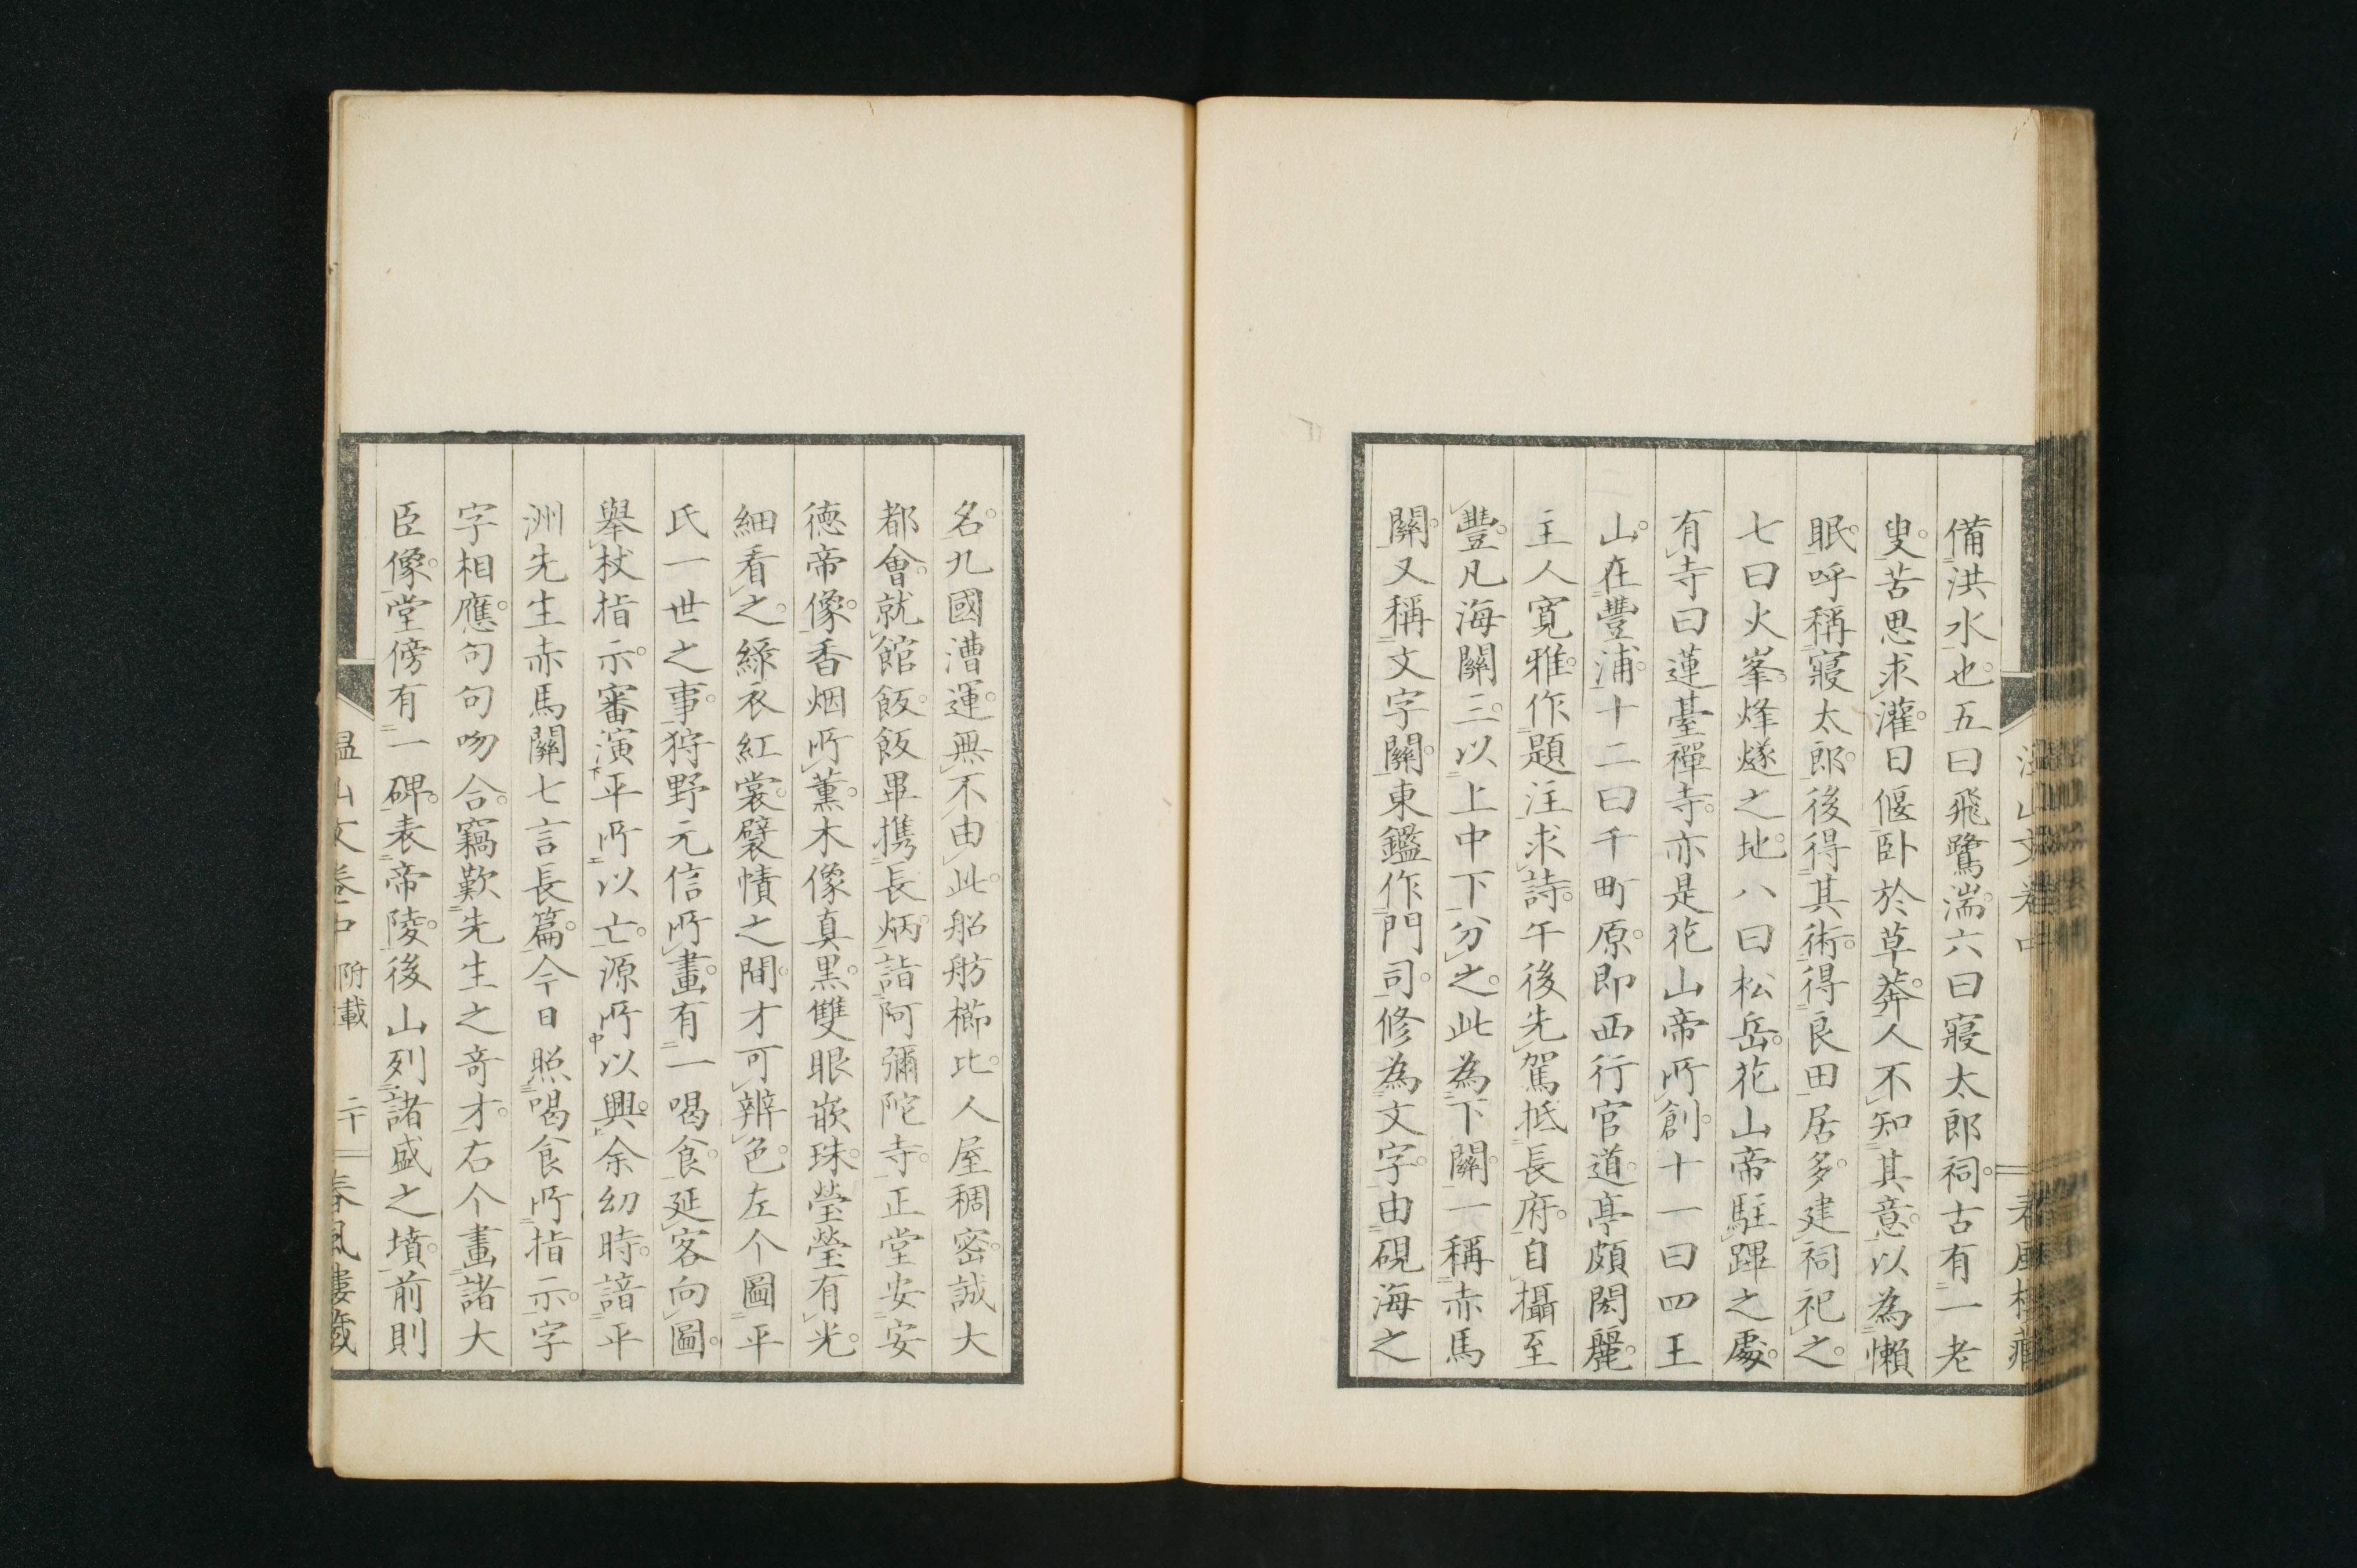 備洪水也。五曰飛鷺湍。六曰寢太郎祠。古有一老
叟。苦思求灌。日偃卧於草莽。人不知其意。以為懶
眠。呼稱寢太郎。後得其術。得良田居多。建祠祀之。
七曰火峯。烽燧之地。八曰松岳。花山帝駐蹕之處。
有寺曰蓮臺禪寺。亦是花山帝所創。十一曰四王
山。在豐浦。十二曰千町原。即西行官道。亭頗閎麗。
主人寬雅。作題注求詩。午後先駕抵長府。自攝至
豐。凡海關三。以上中下分之。此為下關。一稱赤馬
關。又稱文字關。東鑑作門司。修為文字。由硯海之
名。九國漕運。無不由此。船舫櫛比。人屋稠密。誠大
都會。就館飯。飯畢携長炳。詣阿彌陀寺。正堂安安
德帝像。香烟所薰。木像真黑。雙眼嵌珠。瑩瑩有光。
細看之。綠衣紅裳。襞幘之間。才可辨色。左个圖平
氏一世之事。狩野元信所畫。有一喝食。延客向圖。
舉杖指示。審演平所以亡。源所以興。余幼時。諳平
洲先生赤馬關七言長篇。今日照喝食所指示。字
字相應。句句吻合。竊歎先生之奇才。右个畫諸大
臣像。堂傍有一碑。表帝陵。後山列諸盛之墳。前則
温山文卷中 附載 二十 春風樓藏